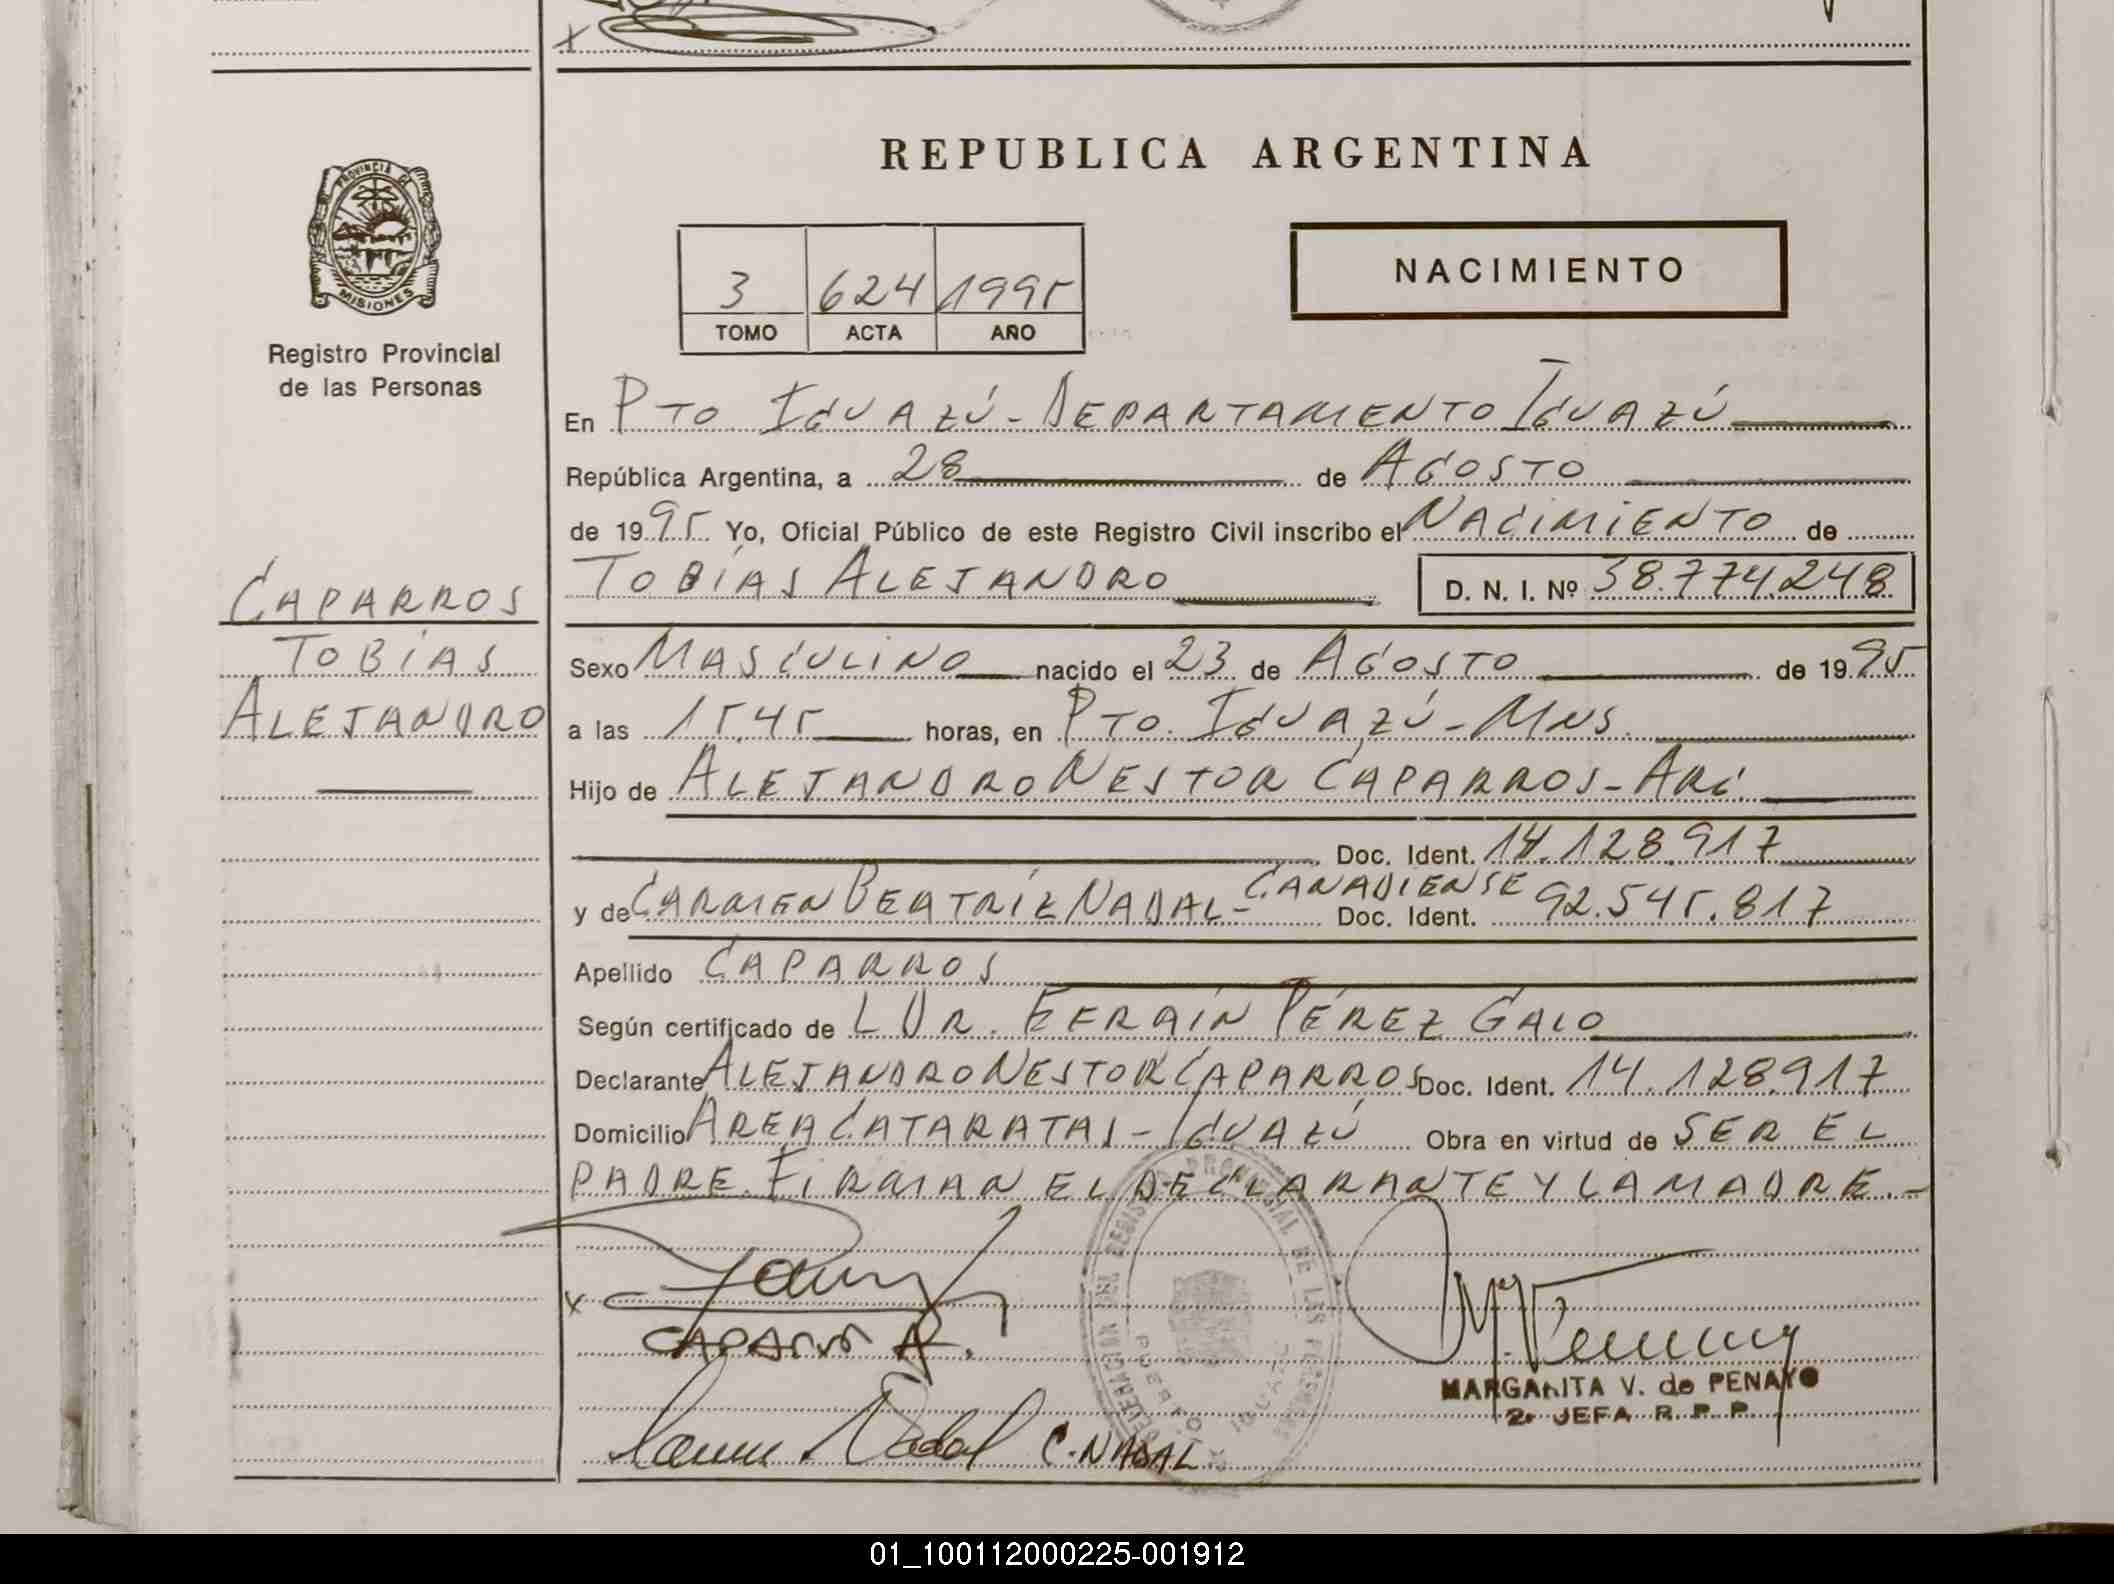 REPUBLICA ARGENTINA
PROVINCIA DE
MISIONES
Registro Provincial
de las Personas
3 624 1995
TOMO ACTA AÑO
NACIMIENTO
En PTO IGUAZÚ - DEPARTAMENTO IGUAZÚ
República Argentina, a 28 de AGOSTO
de 1995 Yo, Oficial Público de este Registro Civil inscribo el NACIMIENTO de
TOBÍAS ALEJANDRO D. N. I. Nº 38.774.248
CAPARROS
TOBÍAS
ALEJANDRO
Sexo MASCULINO nacido el 23 de AGOSTO de 1995
a las 15.45 horas, en PTO. IGUAZÚ - MNS.
Hijo de ALEJANDRO NESTOR CAPARROS - ARG
Doc. Ident. 14.128.917
y de CARMEN BEATRÍZ NADAL - CANADIENSE Doc. Ident. 92.545.817
Apellido CAPARROS
Según certificado de L DR. EFRAÍN PÉREZ GALO
Declarante ALEJANDRO NESTOR CAPARROS Doc. Ident. 14.128.917
Domicilio AREA CATARATAS - IGUAZÚ Obra en virtud de SER EL
PADRE. FIRMAN EL DECLARANTE Y LA MADRE. -
x
CAPARROS A.
MARGARITA V. de PENAYO
2º JEFA R. P. P.
Carmen Nadal C. NADAL
REGISTRO PROVINCIAL DE LAS PERSONAS
PUERTO IGUAZU
01_100112000225-001912